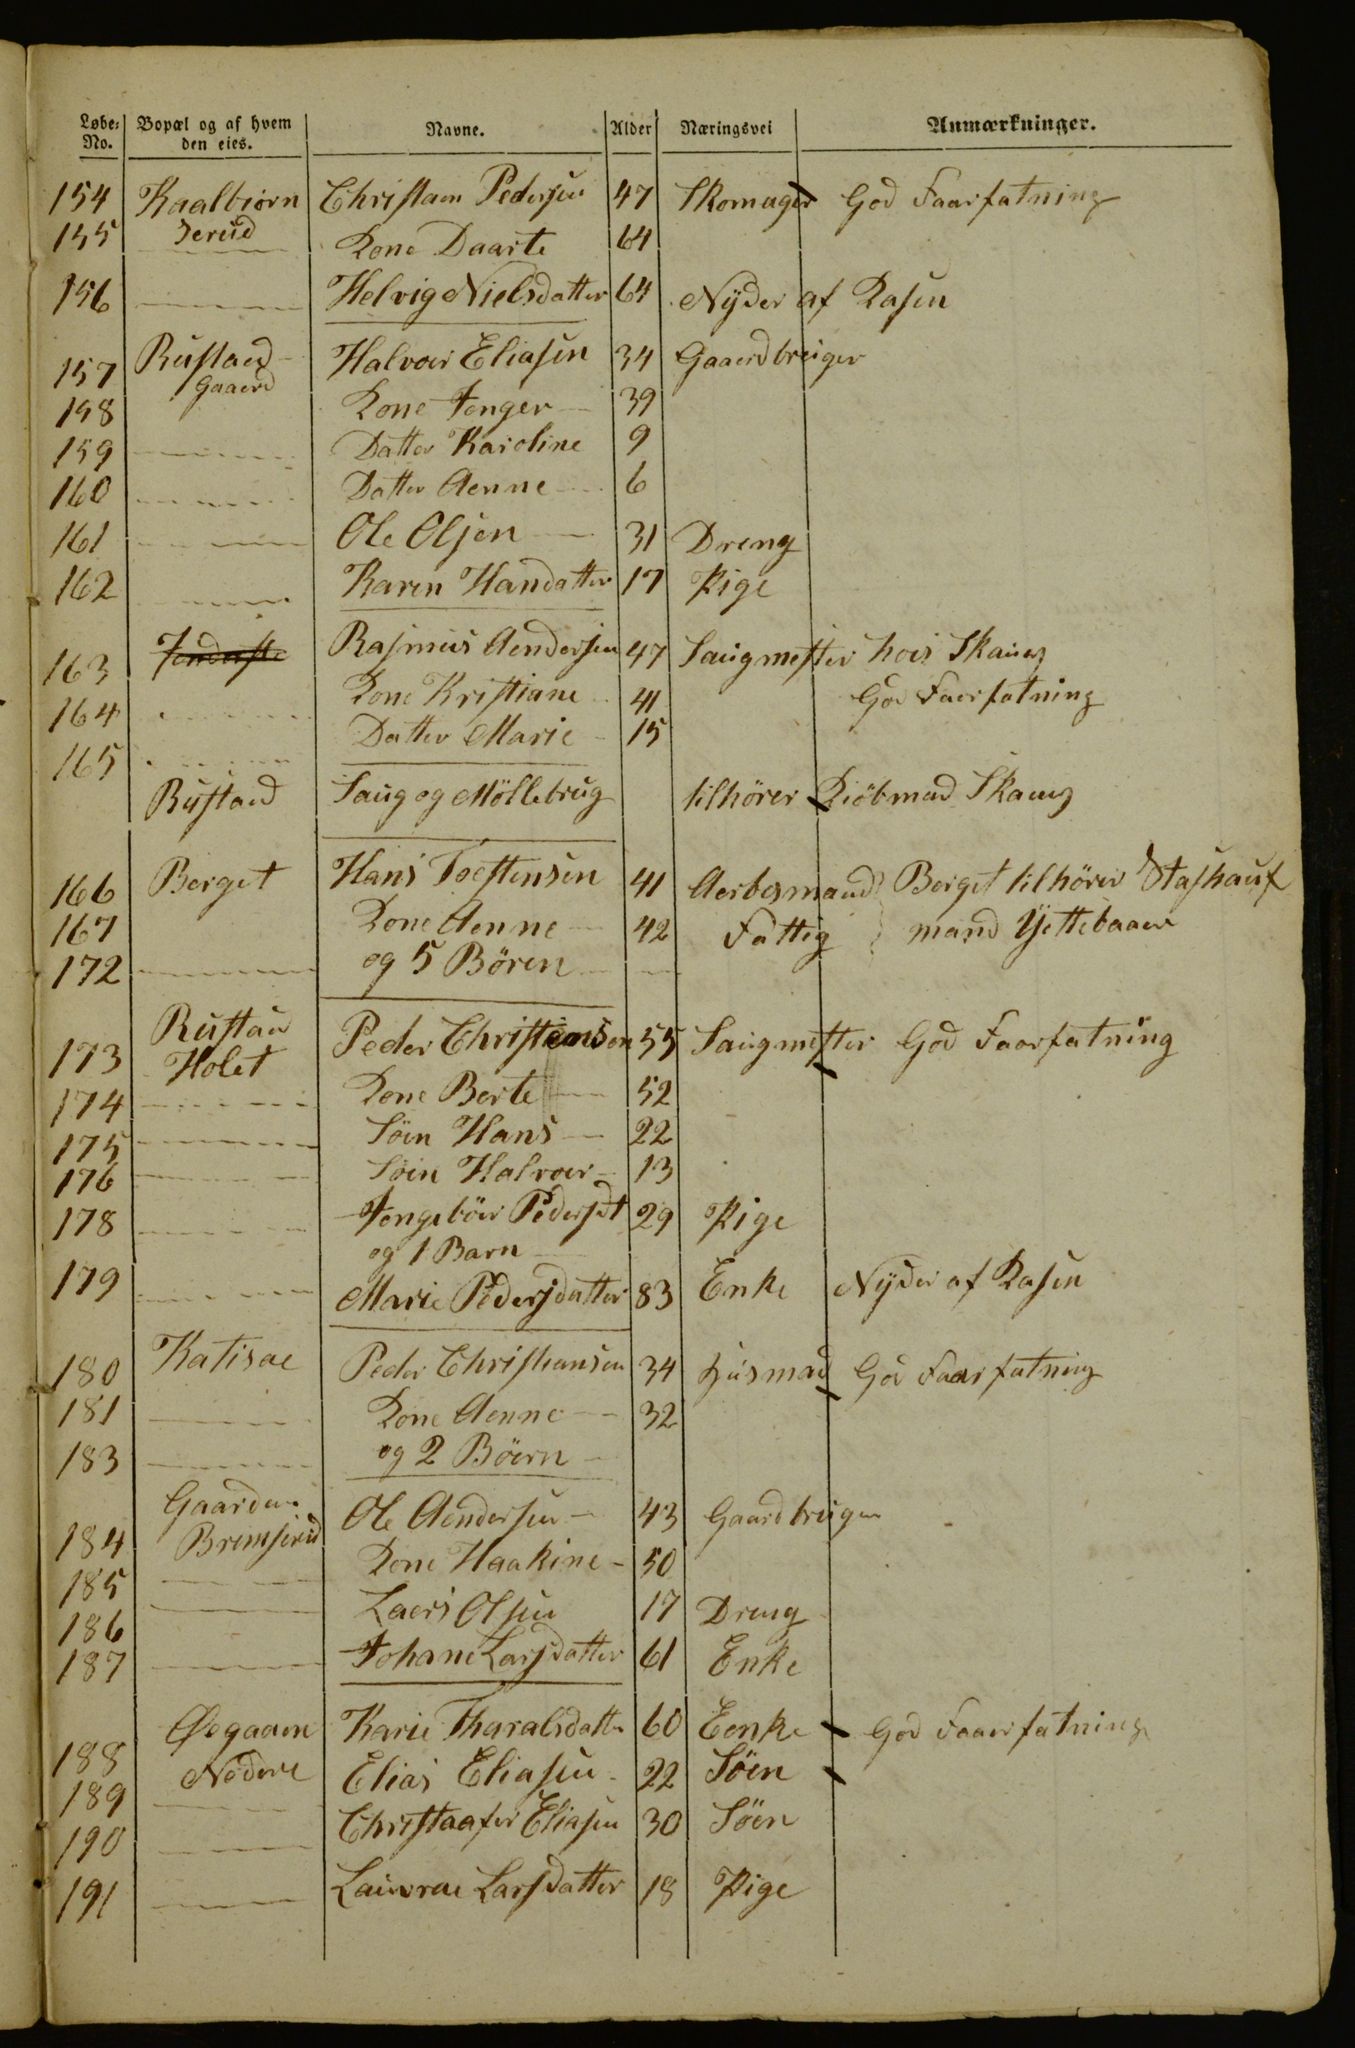 Løbe-No. Bopæl og af hvem den eies. Navne. Alder Næringsvei Anmærkninger.
154 Kaalbiørn Christian Pedersen 47 Skomager God Faarfatning
155 Jerud Kone Daarte 64
156 Helvig Nielsdatter 64 Nyder af Kasen
157 Rustaed Gaaerd Halvoer Eliasen 34 Gaaerdbruiger
158 Kone Ienger 39
159 Datter Karoline 9
160 Datter Aenne 6
161 Ole Olsen 31 Dreng
162 Karen Handatter 17 Pige
163 Rasmus Aendersen 47 Saugmester hois Skaug
164 Kone Kristiane 41 God Faerfatning
165 Datter Marie 15
Rustaed Saug og Möllebrug tilhörer Kiöbmad Skaug
166 Berget Hans Toestensen 41 Aerbesmand Berget tilhörer
167 Kone Aenne 42 Fattig mand
172 og 5 Bören
173 Rustau Holet Peder Christiansen 55 Saugmester God Faorfatning
174 Kone Berte 52
175 Söen Hans 22
176 Söin Halvoer 13
178 Iengeböer Pedersdt 29 Pige
og 1 Barn
179 Marie Pedersdatter 83 Enke Nyder af Kasen
180 Katisae Peder Christiansen 34 Husmad God Faarfatning
181 Kone Aenne 32
183 og 2 Böern
184 Gaarden Bremserud Ole Aendersen 43 Gaardbruiger
185 Kone Haakine 50
186 Laers Olsen 17 Dreng
187 Johane Larsdatter 61 Enke
188 Øegaaen Nedere Karie Tharalsdatter 60 Eenke God Faaerfatning
189 Elias Eliasen 22 Söen
190 Christaafer Eliasen 30 Söen
191 Lauvrae Larsdatter 18 Pige